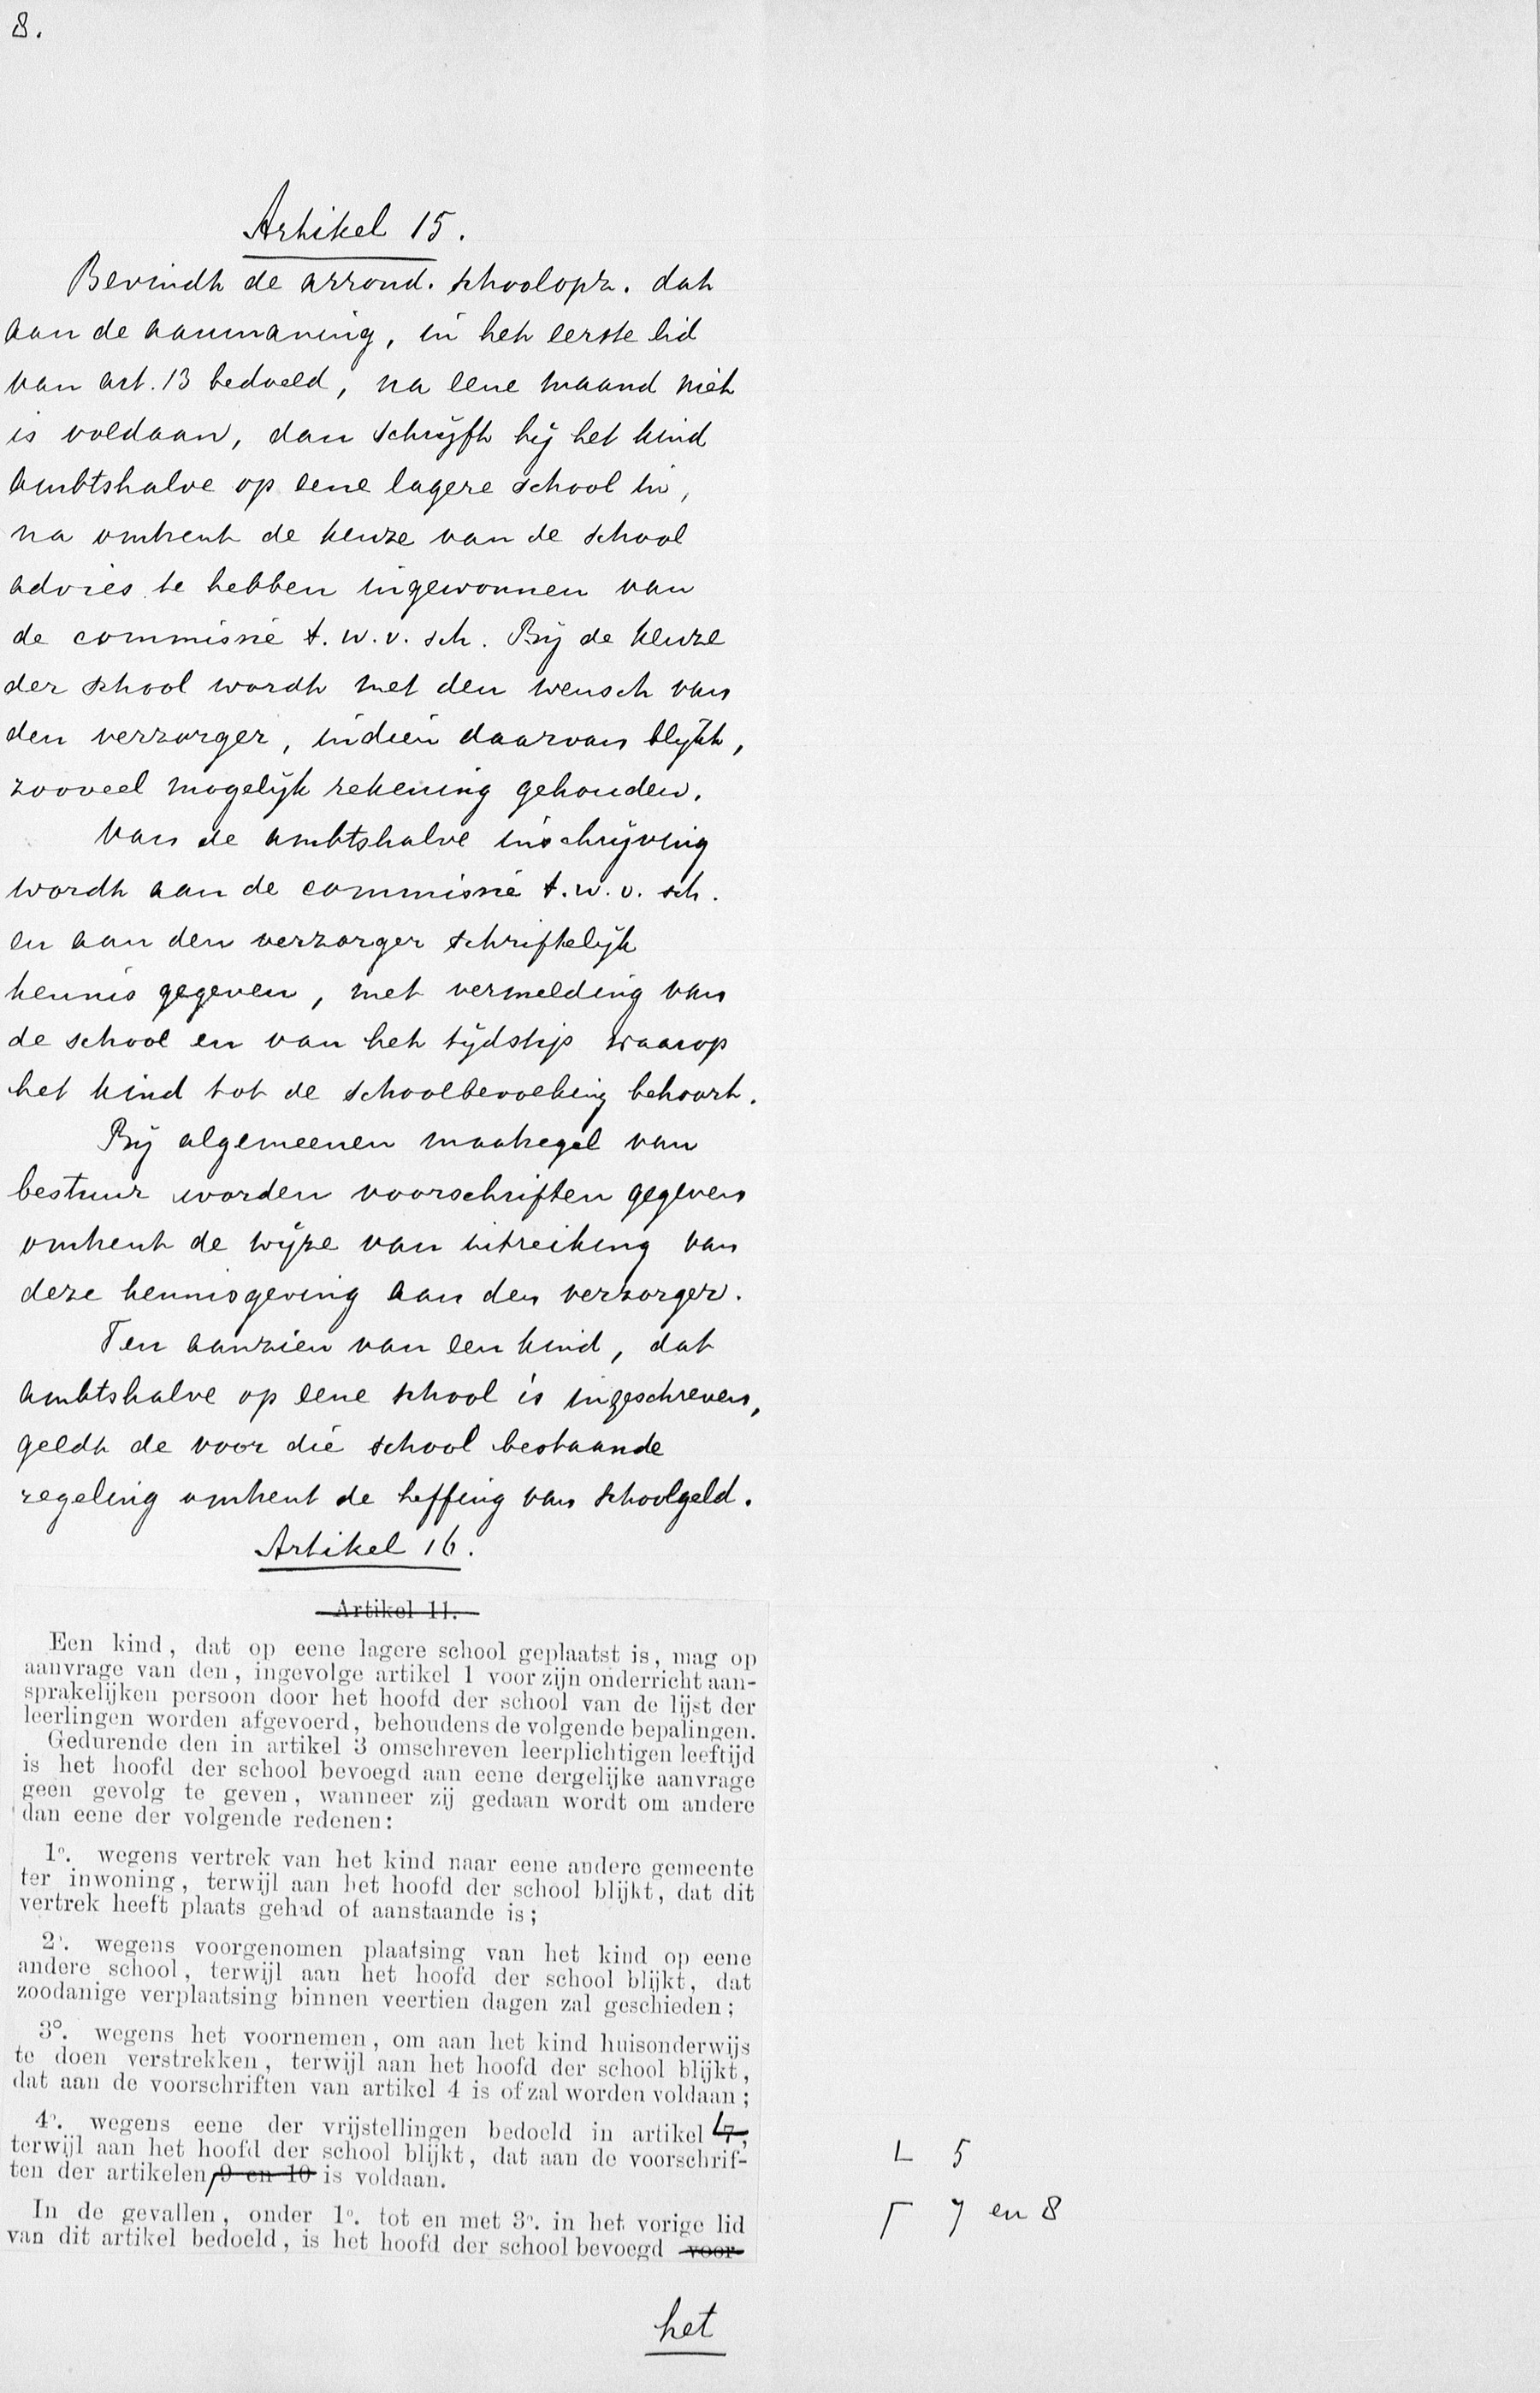 8.
Artikel 15.
Bevindt de arrond. schoolopz. dat
aan de aanmaning, in het eerste lid
van art. 13 bedoeld, na eene maand niet
is voldaan, dan schrijft hij het kind
ambtshalve op eene lagere school in,
na omtrent de keuze van de school
advies te hebben ingewonnen van
de commissie t. w. v. sch. Bij de keuze
der school wordt met den wensch van
den verzorger, indien daarvan blijkt,
zooveel mogelijk rekening gehouden.
Van de ambtshalve inschrijving
wordt aan de commissie t. w. v. sch.
en aan den verzorger schriftelijk
kennis gegeven, met vermelding van
de school en van het tijdstip waarop
het kind tot de schoolbevolking behoort.
Bij algemeenen maatregel van
bestuur worden voorschriften gegeven
omtrent de wijze van uitreiking van
deze kennisgeving aan den verzorger.
Ten aanzien van een kind, dat
ambtshalve op eene school is ingeschreven,
geldt de voor die school bestaande
regeling omtrent de heffing van schoolgeld.
Artikel 16.
Artikel 11.
Een kind, dat op eene lagere school geplaatst is, mag op
aanvrage van den, ingevolge artikel 1 voor zijn onderricht aan-
sprakelijken persoon door het hoofd der school van de lijst der
leerlingen worden afgevoerd, behoudens de volgende bepalingen.
Gedurende den in artikel 3 omschreven leerplichtigen leeftijd
is het hoofd der school bevoegd aan eene dergelijke aanvrage
geen gevolg te geven, wanneer zij gedaan wordt om andere
dan eene der volgende redenen:
1°. wegens vertrek van het kind naar eene andere gemeente
ter inwoning, terwijl aan het hoofd der school blijkt, dat dit
vertrek heeft plaats gehad of aanstaande is;
2°. wegens voorgenomen plaatsing van het kind op eene
andere school, terwijl aan het hoofd der school blijkt, dat
zoodanige verplaatsing binnen veertien dagen zal geschieden;
3°. wegens het voornemen, om aan het kind huisonderwijs
te doen verstrekken, terwijl aan het hoofd der school blijkt,
dat aan de voorschriften van artikel 4 is of zal worden voldaan;
4°. wegens eene der vrijstellingen bedoeld in artikel L 7,
terwijl aan het hoofd der school blijkt, dat aan de voorschrif-
ten der artikelen Γ 9 en 10 is voldaan.
L 5
Γ 7 en 8
In de gevallen, onder 1°. tot en met 3°. in het vorige lid
van dit artikel bedoeld, is het hoofd der school bevoegd voor-
het